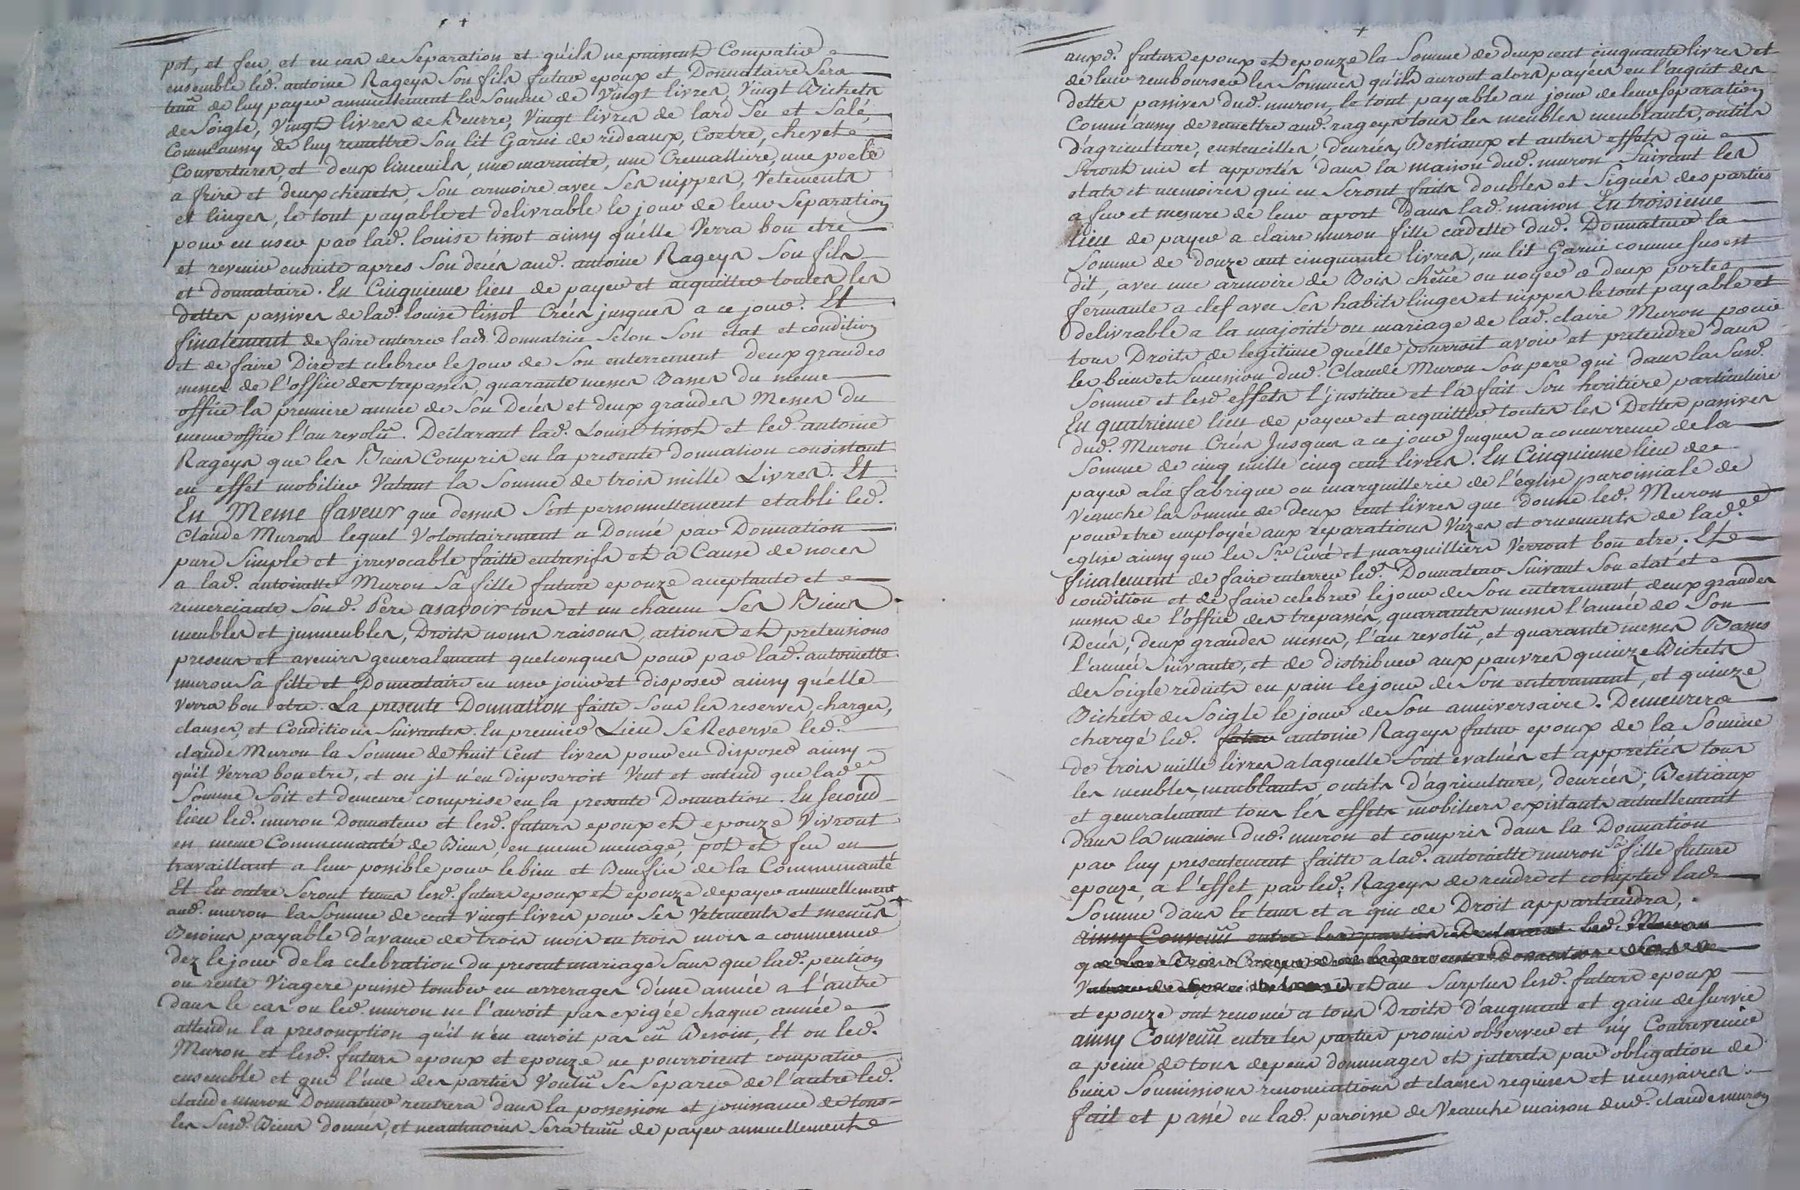 pot, et feu et en cas de Separation et qu'ils ne puissent Compatir
ensemble led. antoine Rageys Son fils futur epoux et Donnataire Sera
tenû de luy payer annuellement la Somme de Vingt livres, Vingt Bichets
de Soigle, Vingt livres de Beurre, Vingt livres de lard Sec et Salé,
Comm'aussy de luy remettre Son lit Garni de rideaux, Coetre, chevet
Couvertures, et deux linceuils, une marmite, une Cremalliere, une poele
a frire et deux chenets, Son armoire avec Ses nippes, Vetements
et linges, le tout payable et delivrable le jour de leur Separation
pour en user par lad. louise tissot ainsy qu'elle Verra bon etre
et revenir ensuite apres Son deces aud. antoine Rageys Son fils
et donnataire. En Cinquieme lieu de payer et acquitter toutes les
dettes passives de lad. louise tissot Créés jusques a ce jour. Et
finalement de faire enterrer lad. Donnatrice Selon Son etat et condition
et de faire Dire et celebrer le Jour de Son enterrement deux grandes
messes de l'office des trepassés, quarante messes Basses du meme
office la premiere année de Son Decés et deux grandes Messes du
meme office l'an revolû. Declarant lad. Louise tissot et led. antoine
Rageys que les Biens Compris en la presente donnation consistant
en effet mobilier Valant la Somme de trois mille Livres. Et
En Meme faveur que dessus S'est personnellement etabli led.
Claude Muron lequel Volontairement a Donné par Donnation
pure Simple et jrrevocable faitte entrevifs et a Cause de noces
a lad. antoinette Muron Sa fille future epouze acceptante et
remerciante Son d. Pere asavoir tous et un chacun Ses Biens
meubles et jmmeubles, Droits noms raisons, actions et pretensions
presens et avenirs generalement quelconques pour par lad. antoinette
muron Sa fille et Donnataire en user jouir et disposer ainsy qu'elle
Verra bon etre. La presente Donnation faitte Sous les reserves, charges,
clauses, et Conditions Suivantes. En premier Lieu Se Reserve led.
claude Muron la Somme de huit Cent livres pour en disposer ainsy
qu'il Verra bon etre, et ou jl n'en disposeroit Veut et entend que lad.
Somme Soit et demeure comprise en la presente Donnation. En Second
lieu led. muron Donnateur et lesd. futurs epoux et epouze Vivront
en meme Communauté de Biens, en meme menage, pot et feu en
travaillant a leur possible pour le bien et Benefice de la Communauté
Et En outre Seront tenus lesd. futurs epoux et epouze de payer annuellement
aud. muron la Somme de cent Vingt livres pour Ses Vetements et menus
Besoins payable d'avance de trois mois en trois mois a commencer
dez le jour de la celebration du present mariage Sans que lad. pension
ou rente Viagere puisse tomber en arrerages d'une année a l'autre
dans le cas ou led. muron ne l'auroit pas exigée chaque année
attendu la presomption qu'il n'en auroit pas eû Besoin, Et ou led.
Muron et lesd. futurs epoux et epouze ne pourroient compatir
ensemble et que l'une des parties Voulû Se Separer de l'autre led.
claude muron Donnateur rentrera dans la possession et jouissance de tous
les Susd. Biens donnés, et neantmoins Sera tenû de payer annuellement
auxd. futurs epoux et epouze la Somme de deux cent cinquante livres et
de leur rembourser les Sommes qu'ils auront alors payées en l'acquit des
dettes passives dud. muron, le tout payable au jour de leur Separation
Comm'aussy de remettre aud. rageys tous les meubles meublants, outils
d'agriculture, enstencilles, d'enrées, Bestiaux et autres effets qui
Seront mis et apportés dans la maison dud. muron Suivant les
etats et memoires qui en Seront faits doubles et Signés des parties
a fur et mesure de leur aport Dans lad. maison En troisieme
lieu de payer a claire muron fille cadette dud. Donnateur la
Somme de douze cent cinquante livres, un lit Garni comme sus est
dit, avec une armoire de Bois chêne ou noyer a deux portes
fermante a clef avec Ses habits linges et nippes le tout payable et
delivrable a la majorité ou mariage de lad. claire Muron pour
tous Droits de legitime qu'elle pourroit avoir et pretendre dans
les biens et Succession dud. Claude Muron Son pere qui dans la Susd.
Somme et lesd. effets l'jnstitue et la fait Son heritiere particuliere
En quatrieme lieu de payer et acquitter toutes les Dettes passives
dud. Muron Créés Jusques a ce jour Jusques a concurrence de la
Somme de cinq mille cinq cent livres. En Cinquieme lieu de
payer a la fabrique ou marguillerie de l'église paroissiale de
Veauche la Somme de deux cent livres que donne led. Muron
pour etre employée aux reparations Vazes et ornements de lad.
eglise ainsy que les Srs Curé et marguilliers Verront bon etre. Et
finalement de faire enterrer led. Donnateur Suivant Son etat et
condition et de faire celebrer le jour de Son enterrement deux grandes
messes de l'office des trepassés, quarantes messes l'année de Son
Decés, deux grandes messes, l'an revolû, et quarante messes Basses
l'année Suivante, et de distribuer aux pauvres quinze Bichets
de Soigle reduits en pain le jour de Son enterrement, et quinze
Bichets de Soigle le jour de Son anniversaire. Demeurera
chargé led. futur antoine Rageys futur epoux de la Somme
de trois mille livres a laquelle Sont evalués et appretiés tous
les meubles, meublants, outils d'agriculture, deurées, Bestiaux
et generalement tous les effets mobiliers existants actuellement
dans la maison dud. muron et compris dans la Donnation
par luy presentement faitte a lad. antoinette muron Sa fille future
epouze a l'effet par led. Rageys de rendre et compter lad.
Somme dans le tems et a qui de Droit appartiendra,
ainsy Convenû entre les parties Declarant led. Muron
et au Surplus lesd. futurs epoux
et epouze ont renoncé a tous Droits d'augment et gain de Survie
ainsy Convenû entre les parties promis observer et n'y Contrevenir
a peine de tous depens dommages et jnterets par obligation de
biens Soumissions renonciations et clauses requises et necessaires.
fait et passé en lad. paroisse de Veauche maison dud. claude muron